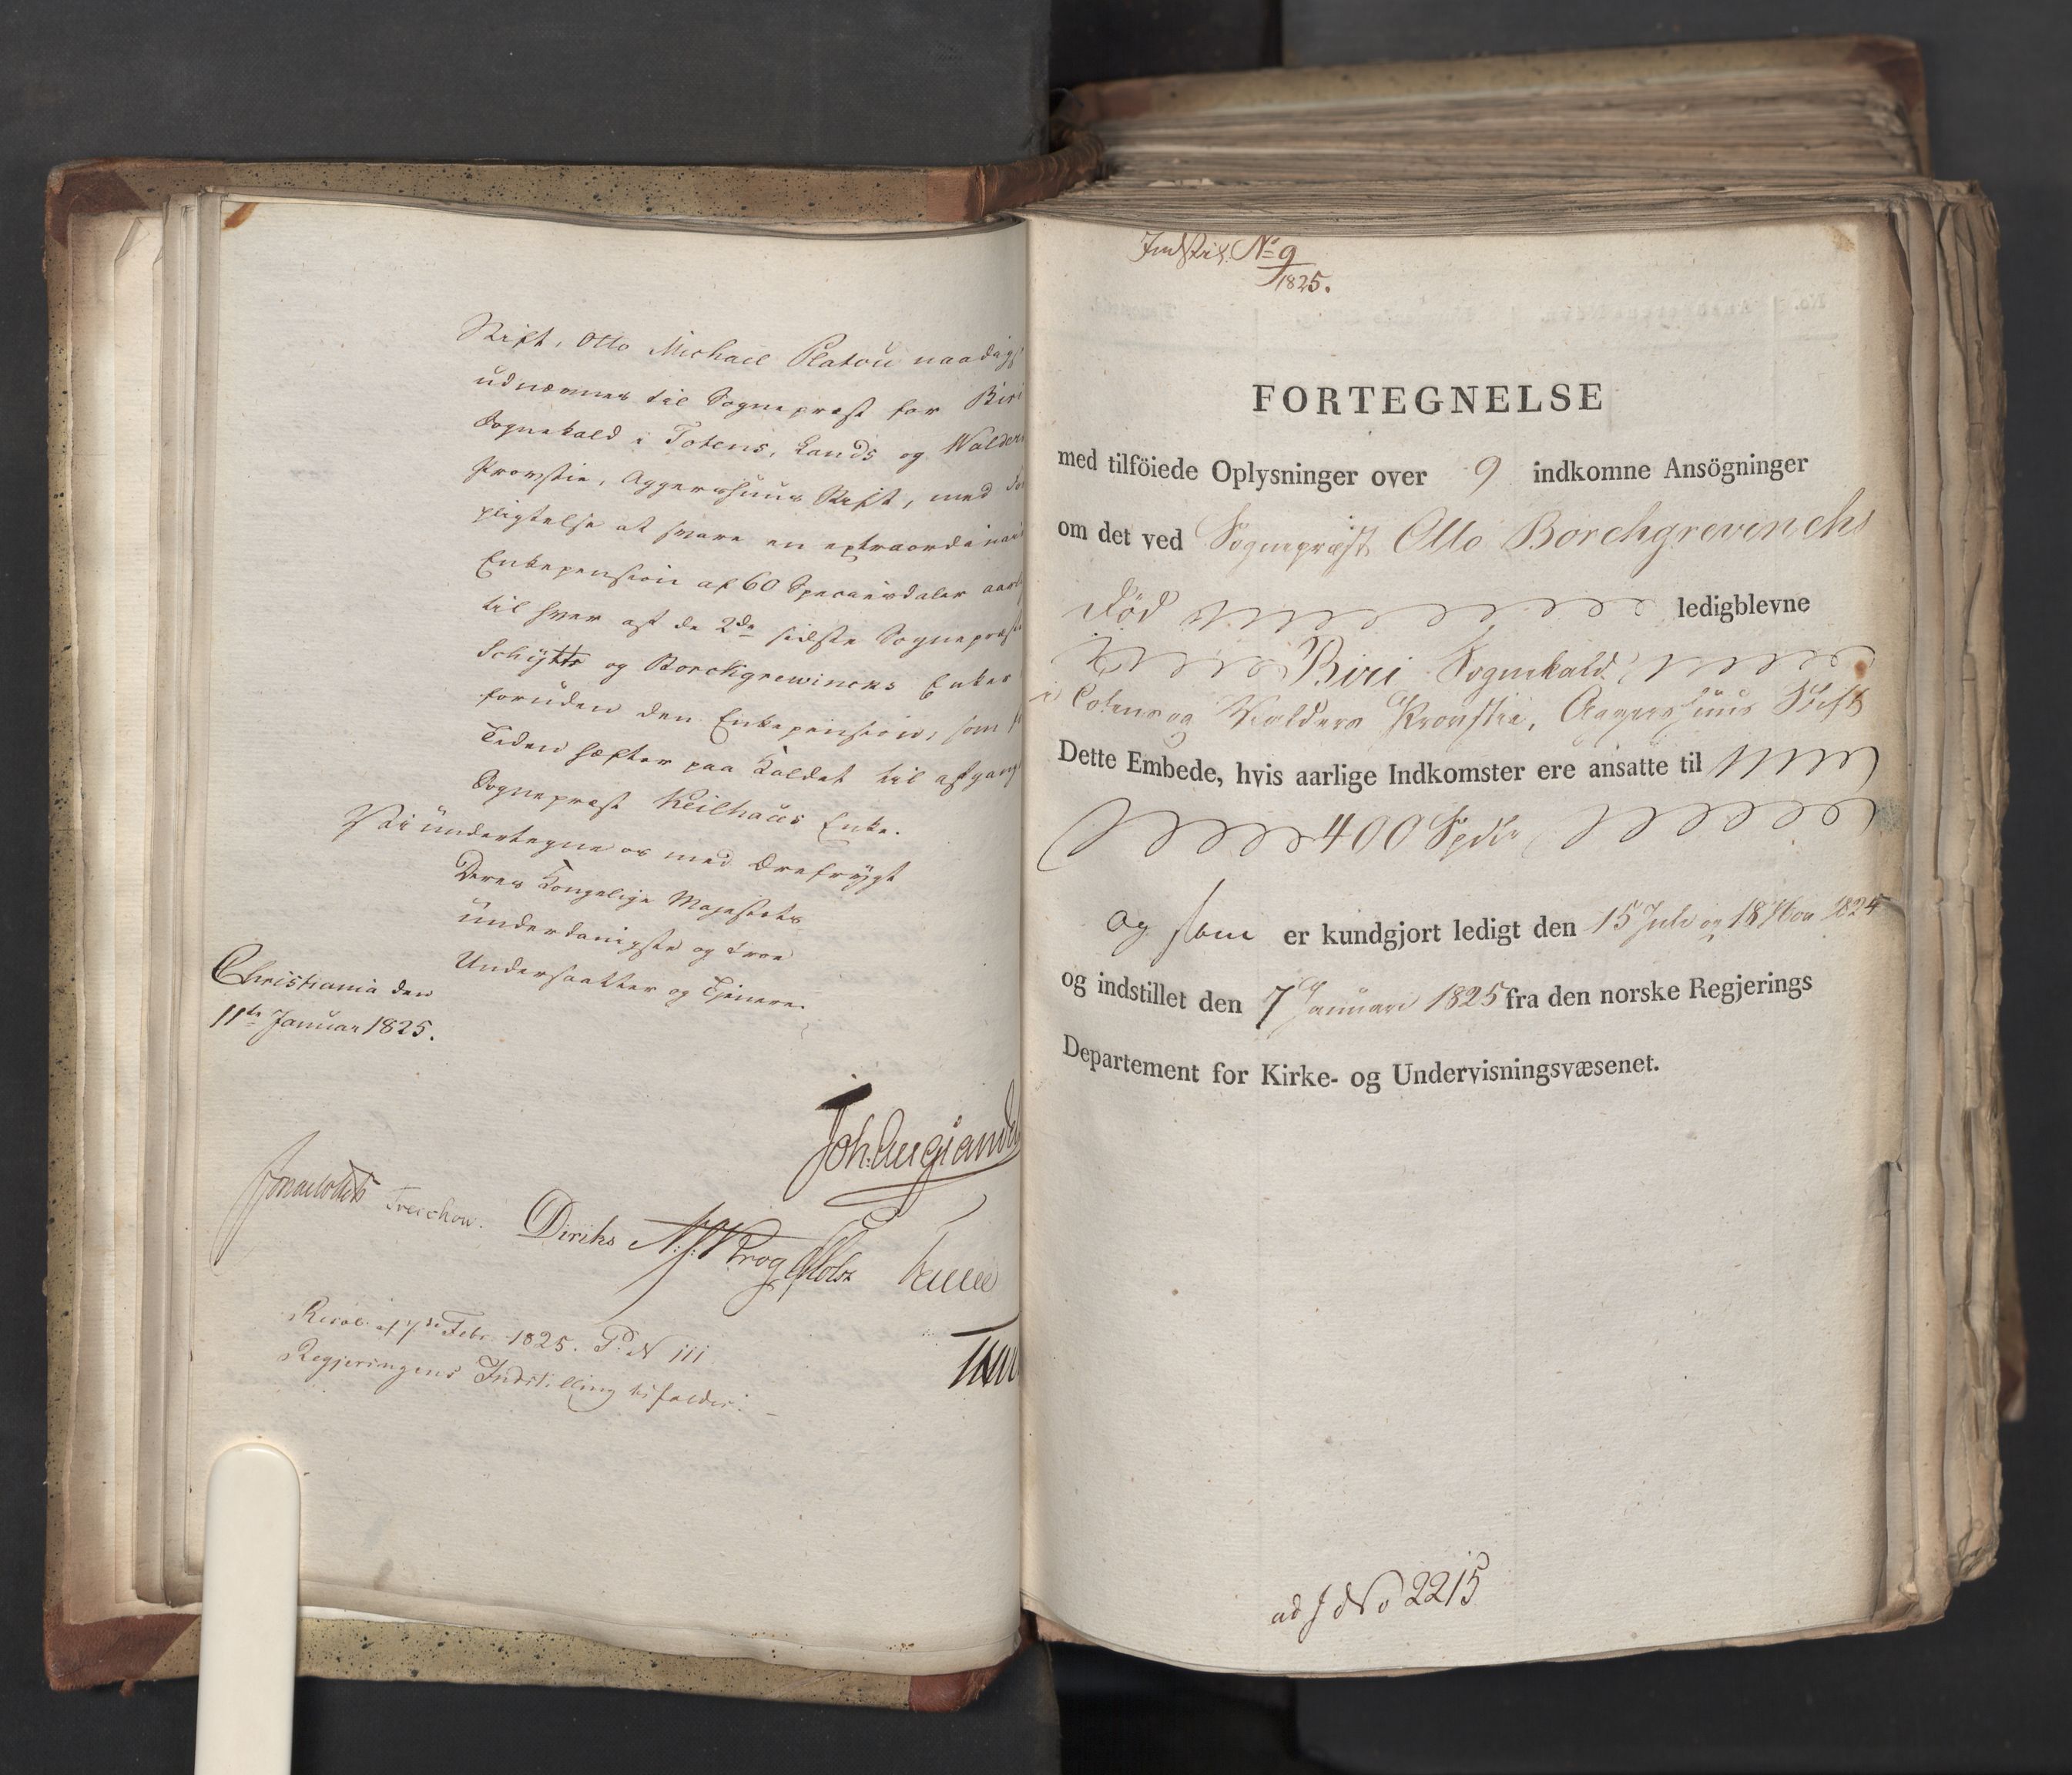 Stift, Otto Michael Platou naadigst
udnævnes til Sognepræst for Biri
Sognekald i Totens, Lands og Walders
Provstie, Aggershuus Stift, med For
pligtelse at svare en extraordinair
Enkepension af 60 Speciesdaler aarlig
til hver af de 2de sidste Sognepræster
Schÿtts og Borchgrewincks Enker
foruden den Enkepension, som for
Tiden hæfter paa Kaldet til afgangne
Sognepræst Keilhaus Enke.
Vi undertegne os med Ærefrÿgt
Deres Kongelige Majestæts
underdanigste og troe
Undersaatter og Tjenere.
Christiania den
11te Januar 1825.
Joh: Aug: Sandels
Treschow. Diriks N:J:Krog Holst
Resol: af 7de Febr. 1825. P. N 111
Regjeringens Indstilling bifaldes. –
Indstil. No 9
1825.
FORTEGNELSE
med tilföiede Oplysninger over 9 indkomne Ansögninger
om det ved Sognepræst Otto Borchgrevincks
Död ledigblevne
Biri Sognekald
i Totens og Walders Provstie, Aggershuus Stift
Dette Embede, hvis aarlige Indkomster ere ansatte til
400 Spdlr
og som er kundgjort ledigt den 15 Juli og 18 Nov 1824
og indstillet den 7 Januar 1825 fra den norske Regjerings
Departement for Kirke- og Undervisningsvæsenet.
ad J No 2215